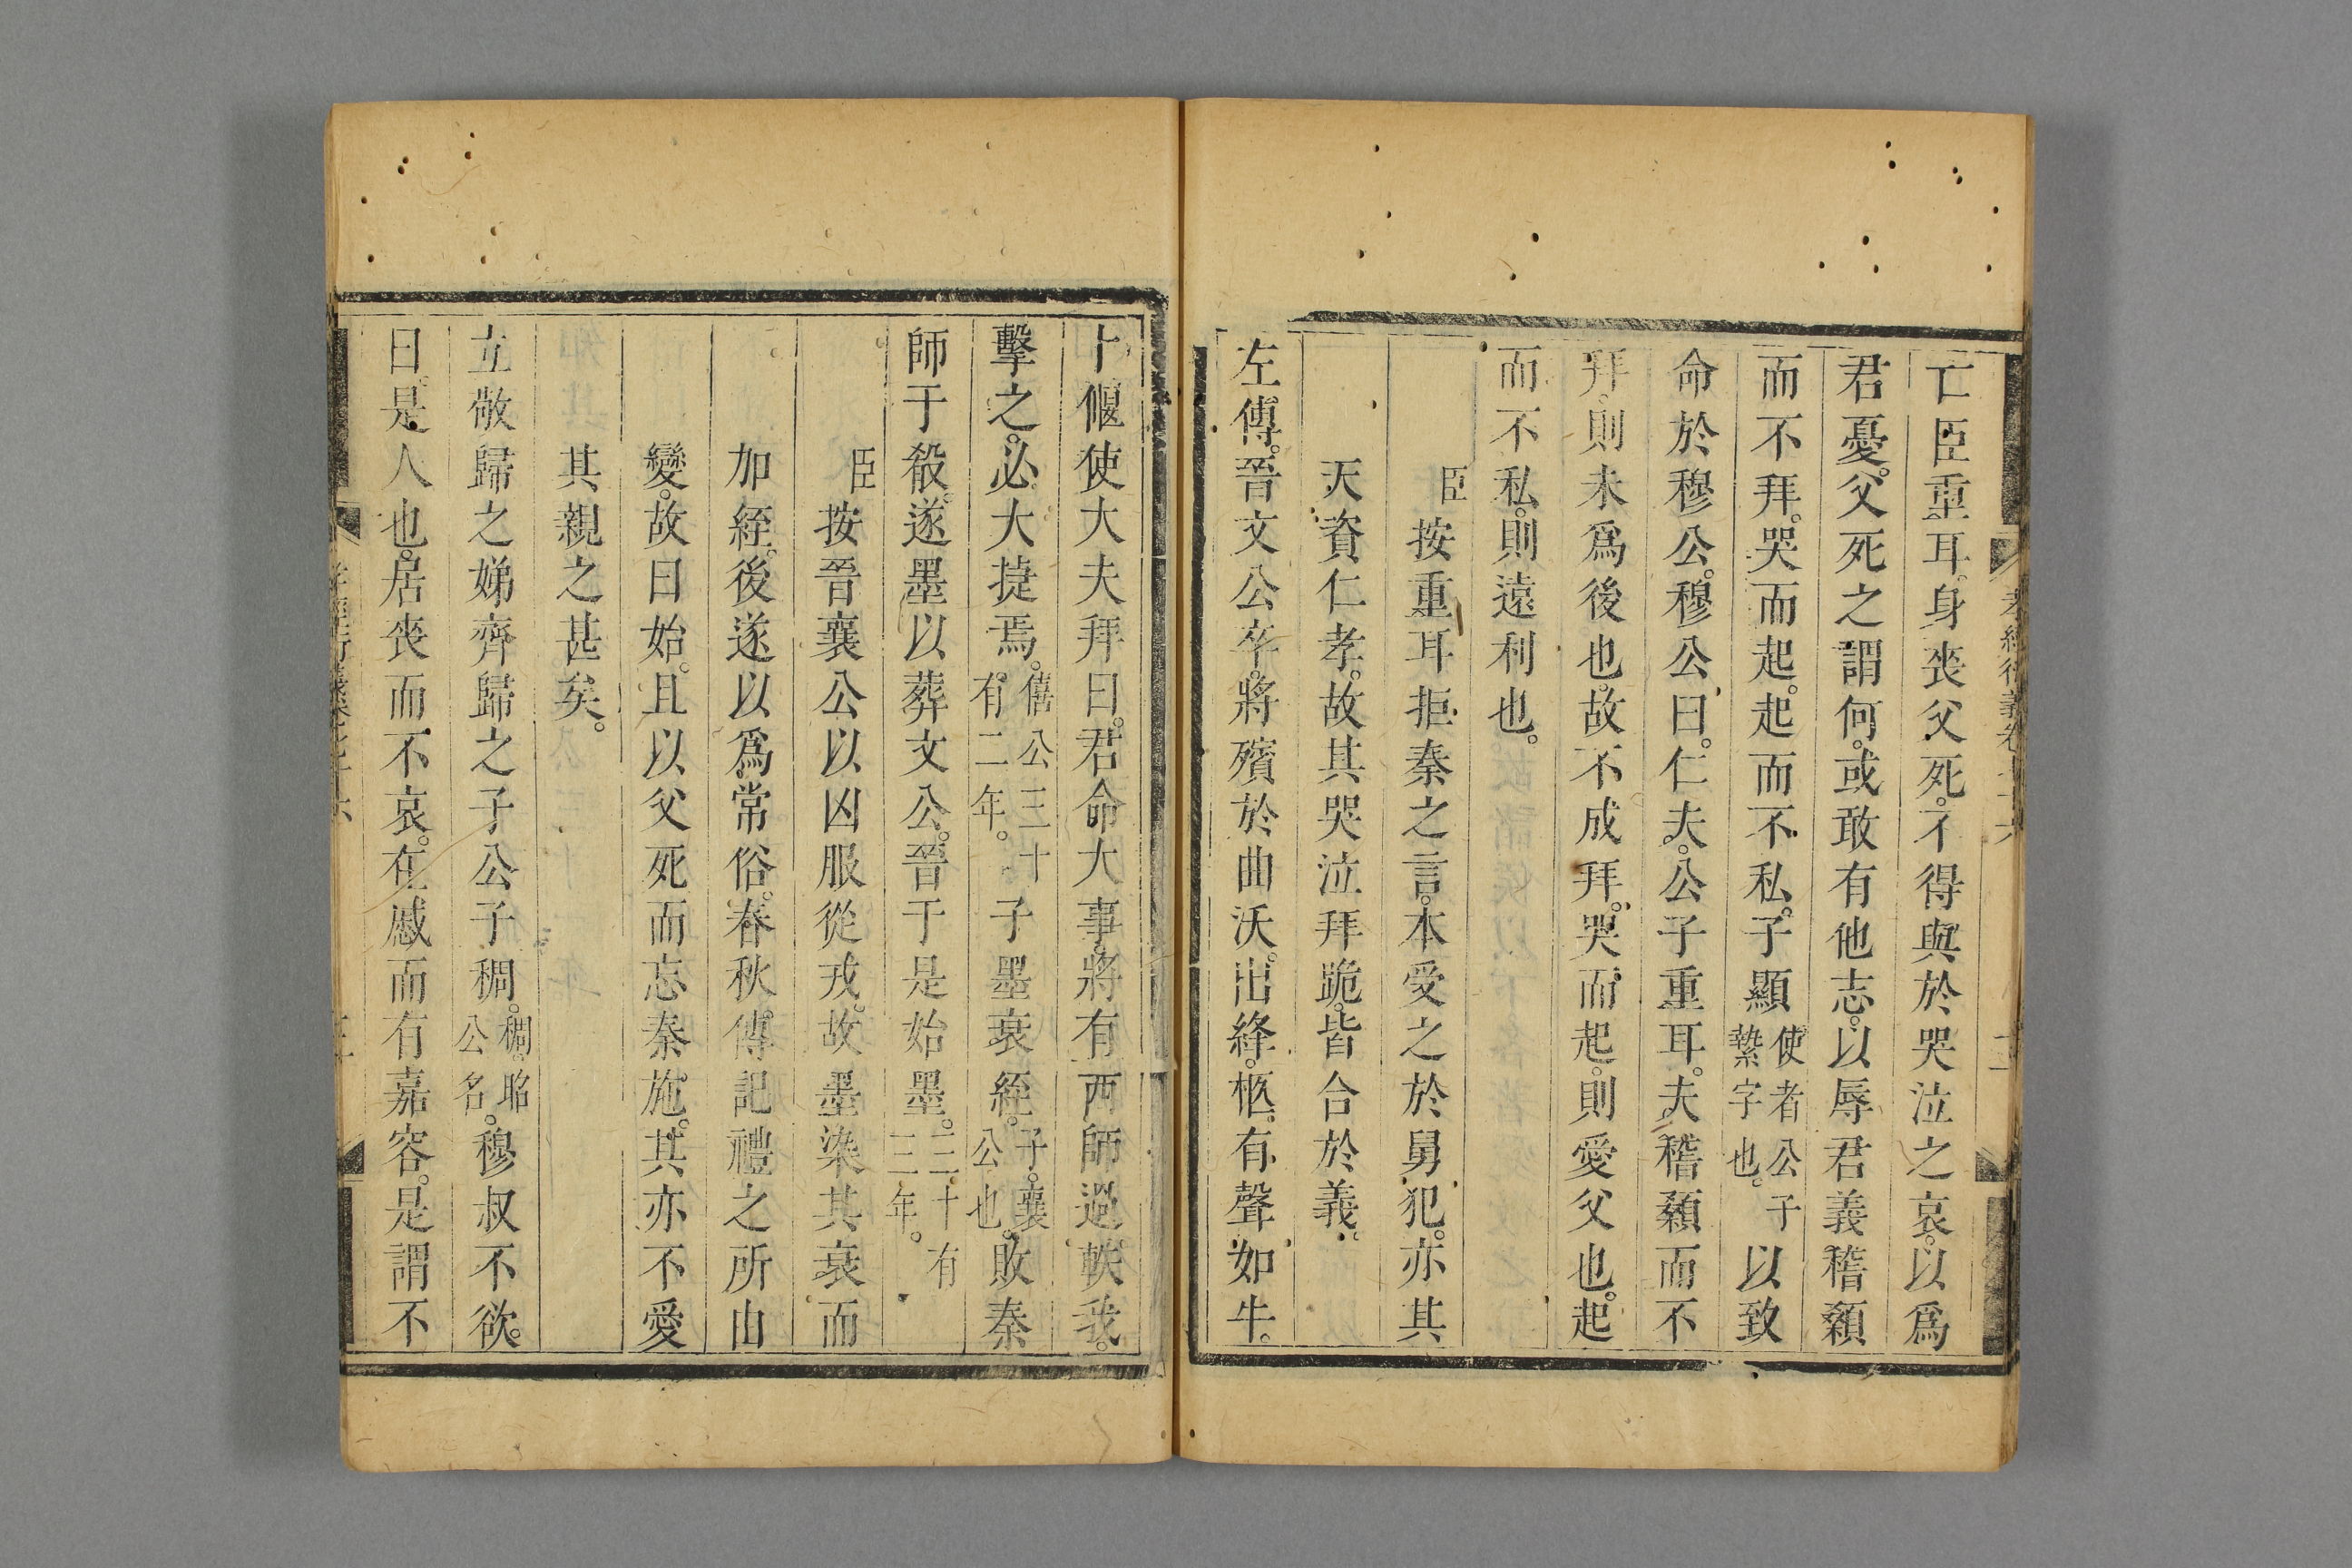 亡臣重耳。身喪父死。不得與於哭泣之哀。以爲
君憂。父死之謂何。或敢有他志。以辱君義稽顙
而不拜。哭而起。起而不私。子顯使者公子縶字也。以致
命於穆公。穆公曰。仁夫。公子重耳。夫稽顙而不
拜。則未爲後也。故不成拜。哭而起。則愛父也。起
而不私。則遠利也。
臣按重耳拒秦之言。本受之於舅犯。亦其
天資仁孝。故其哭泣拜跪。皆合於義。
左傳。晉文公卒。將殯於曲沃。出絳。柩。有聲如牛。
卜偃使大夫拜曰。君命大事。將有西師過軼我。
擊之。必大捷焉。僖公三十有二年。子墨衰絰。子。襄公也。敗秦
師于殽。遂墨以葬文公。晉于是始墨。三十有三年。
臣按晉襄公以凶服從戎。故墨染其衰而
加絰。後遂以爲常俗。春秋。傳記禮之所由
變。故曰始。且以父死而忘秦施。其亦不愛
其親之甚矣。
立敬歸之娣齊歸之子公子稠。稠。昭公名。穆叔不欲。
曰。是人也。居喪而不哀。在慼而有嘉容。是謂不